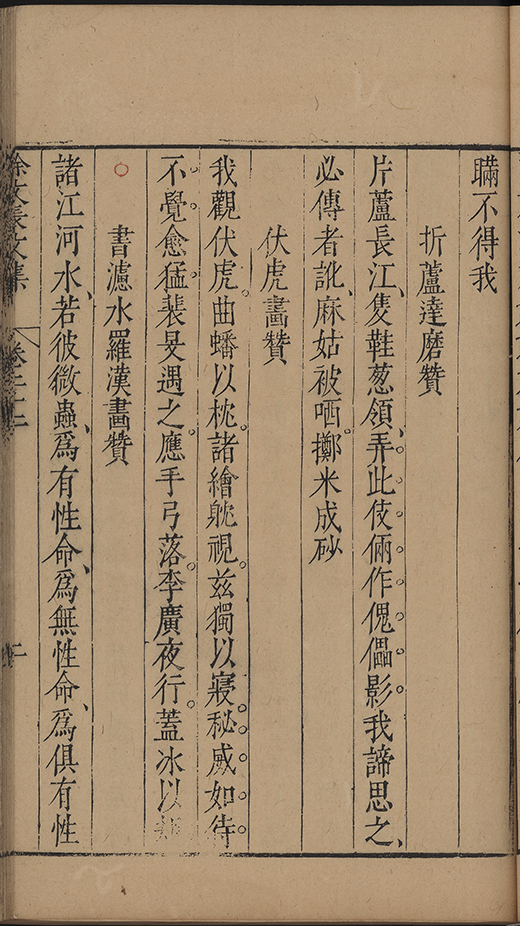 瞞不得我
折蘆達磨贊
片蘆長江、隻鞋葱領、弄此伎倆作傀儡影我諦思之、
必傳者訛、麻姑被哂擲米成砂
伏虎畫贊
我觀伏虎。曲蟠以枕。諸繪躭視。兹獨以寢。秘威如待
不覺愈猛。裴旻遇之。應手弓落。李廣夜行。蓋冰以
書濾水羅漢畫贊
諸江河水、若彼微蟲、爲有性命、爲無性命、爲俱有性
徐文長文集 卷二十二